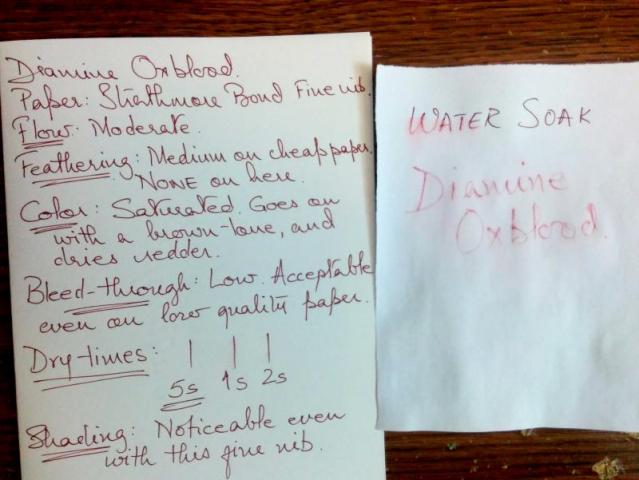 Diamine Oxblood.
Paper: Strathmore Bond Fine nib.
Flow: Moderate.
Feathering: Medium on cheap paper.
NONE on here.
Color: Saturated. Goes on
with a brown-tone, and
dries redder.
Bleed-through: Low. Acceptable
even on low quality paper.
Dry-times:
5s 1s 2s
Shading: Noticeable even
with this fine nib.
WATER SOAK
Diamine
Oxblood.